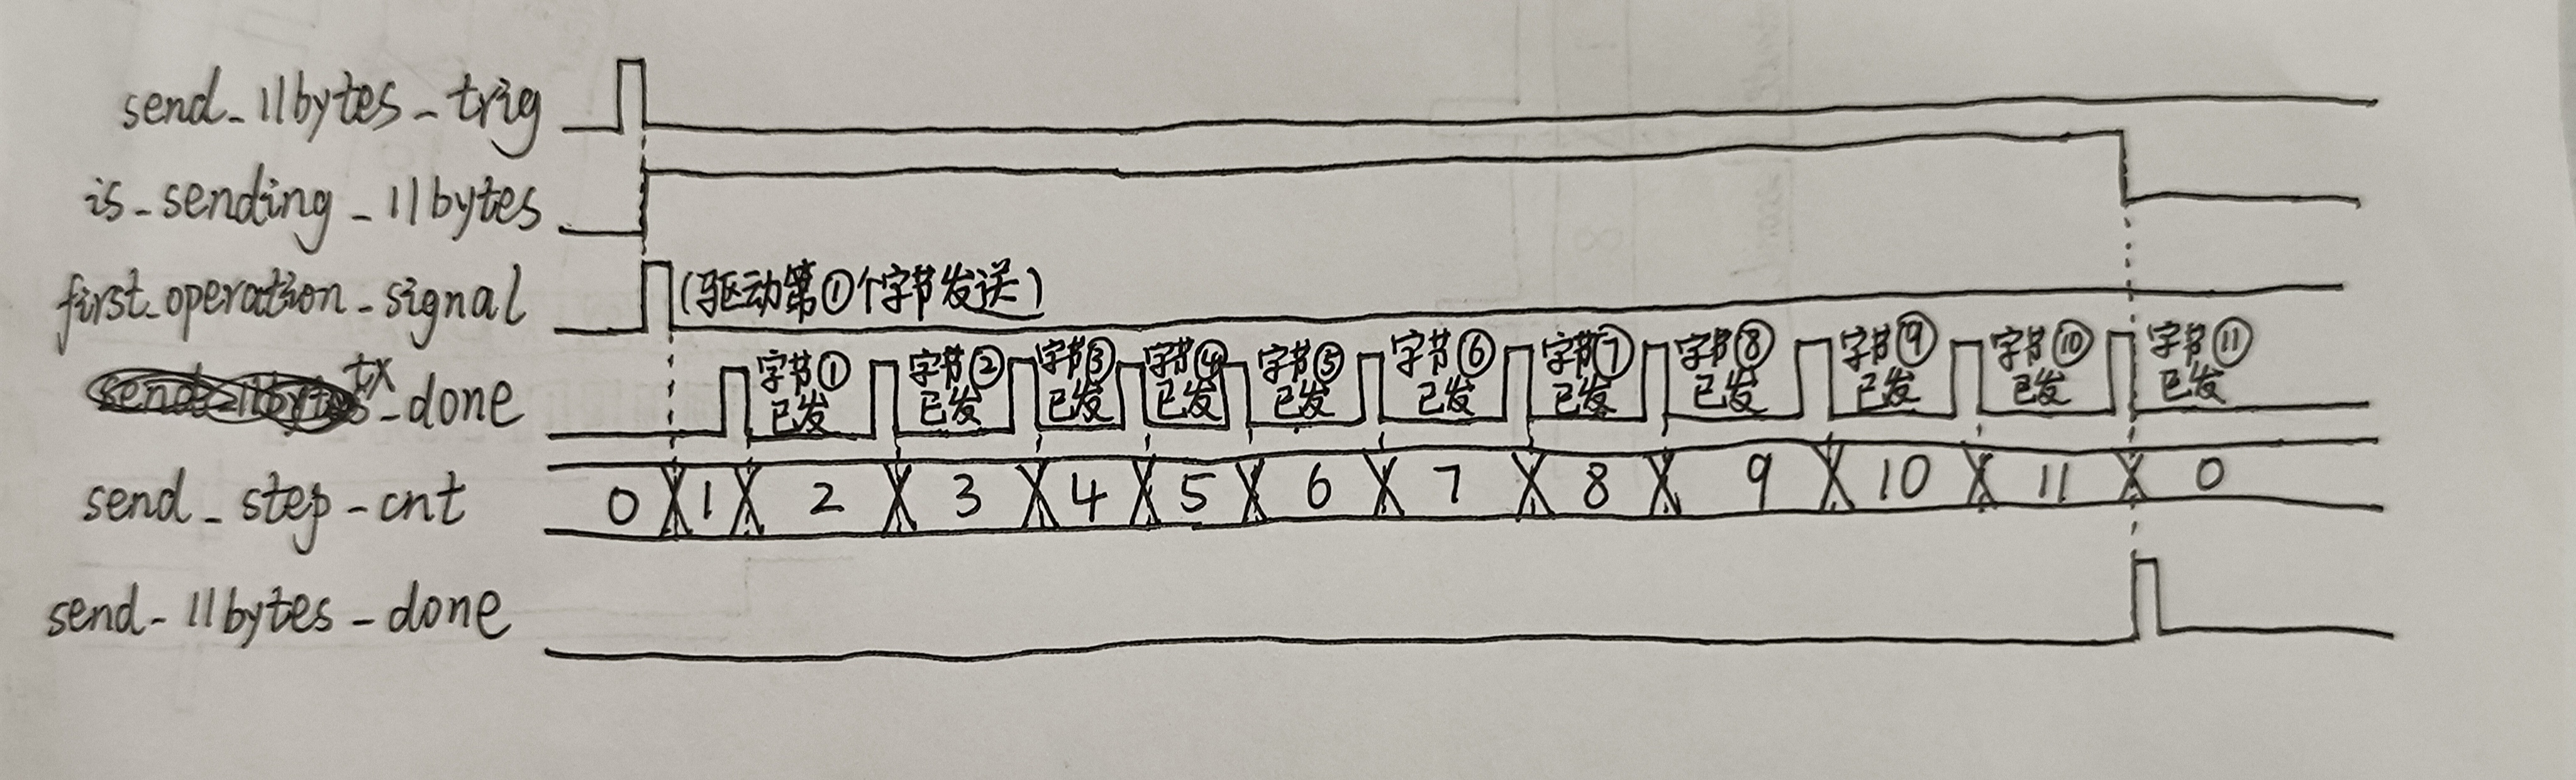 send_11bytes_trig
is_sending_11bytes
first_operation_signal (驱动第①个字节发送)
tx_done 字节①已发 字节②已发 字节③已发 字节④已发 字节⑤已发 字节⑥已发 字节⑦已发 字节⑧已发 字节⑨已发 字节⑩已发 字节⑪已发
send_step_cnt 0 1 2 3 4 5 6 7 8 9 10 11 0
send_11bytes_done